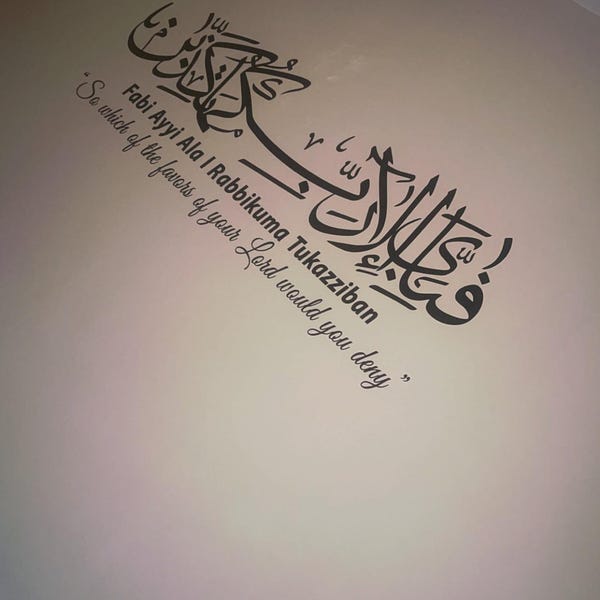 فَبِأَيِّ آلَاءِ رَبِّكُمَا تُكَذِّبَانِ
Fabi Ayyi Ala I Rabbikuma Tukazziban
“So which of the favors of your Lord would you deny”